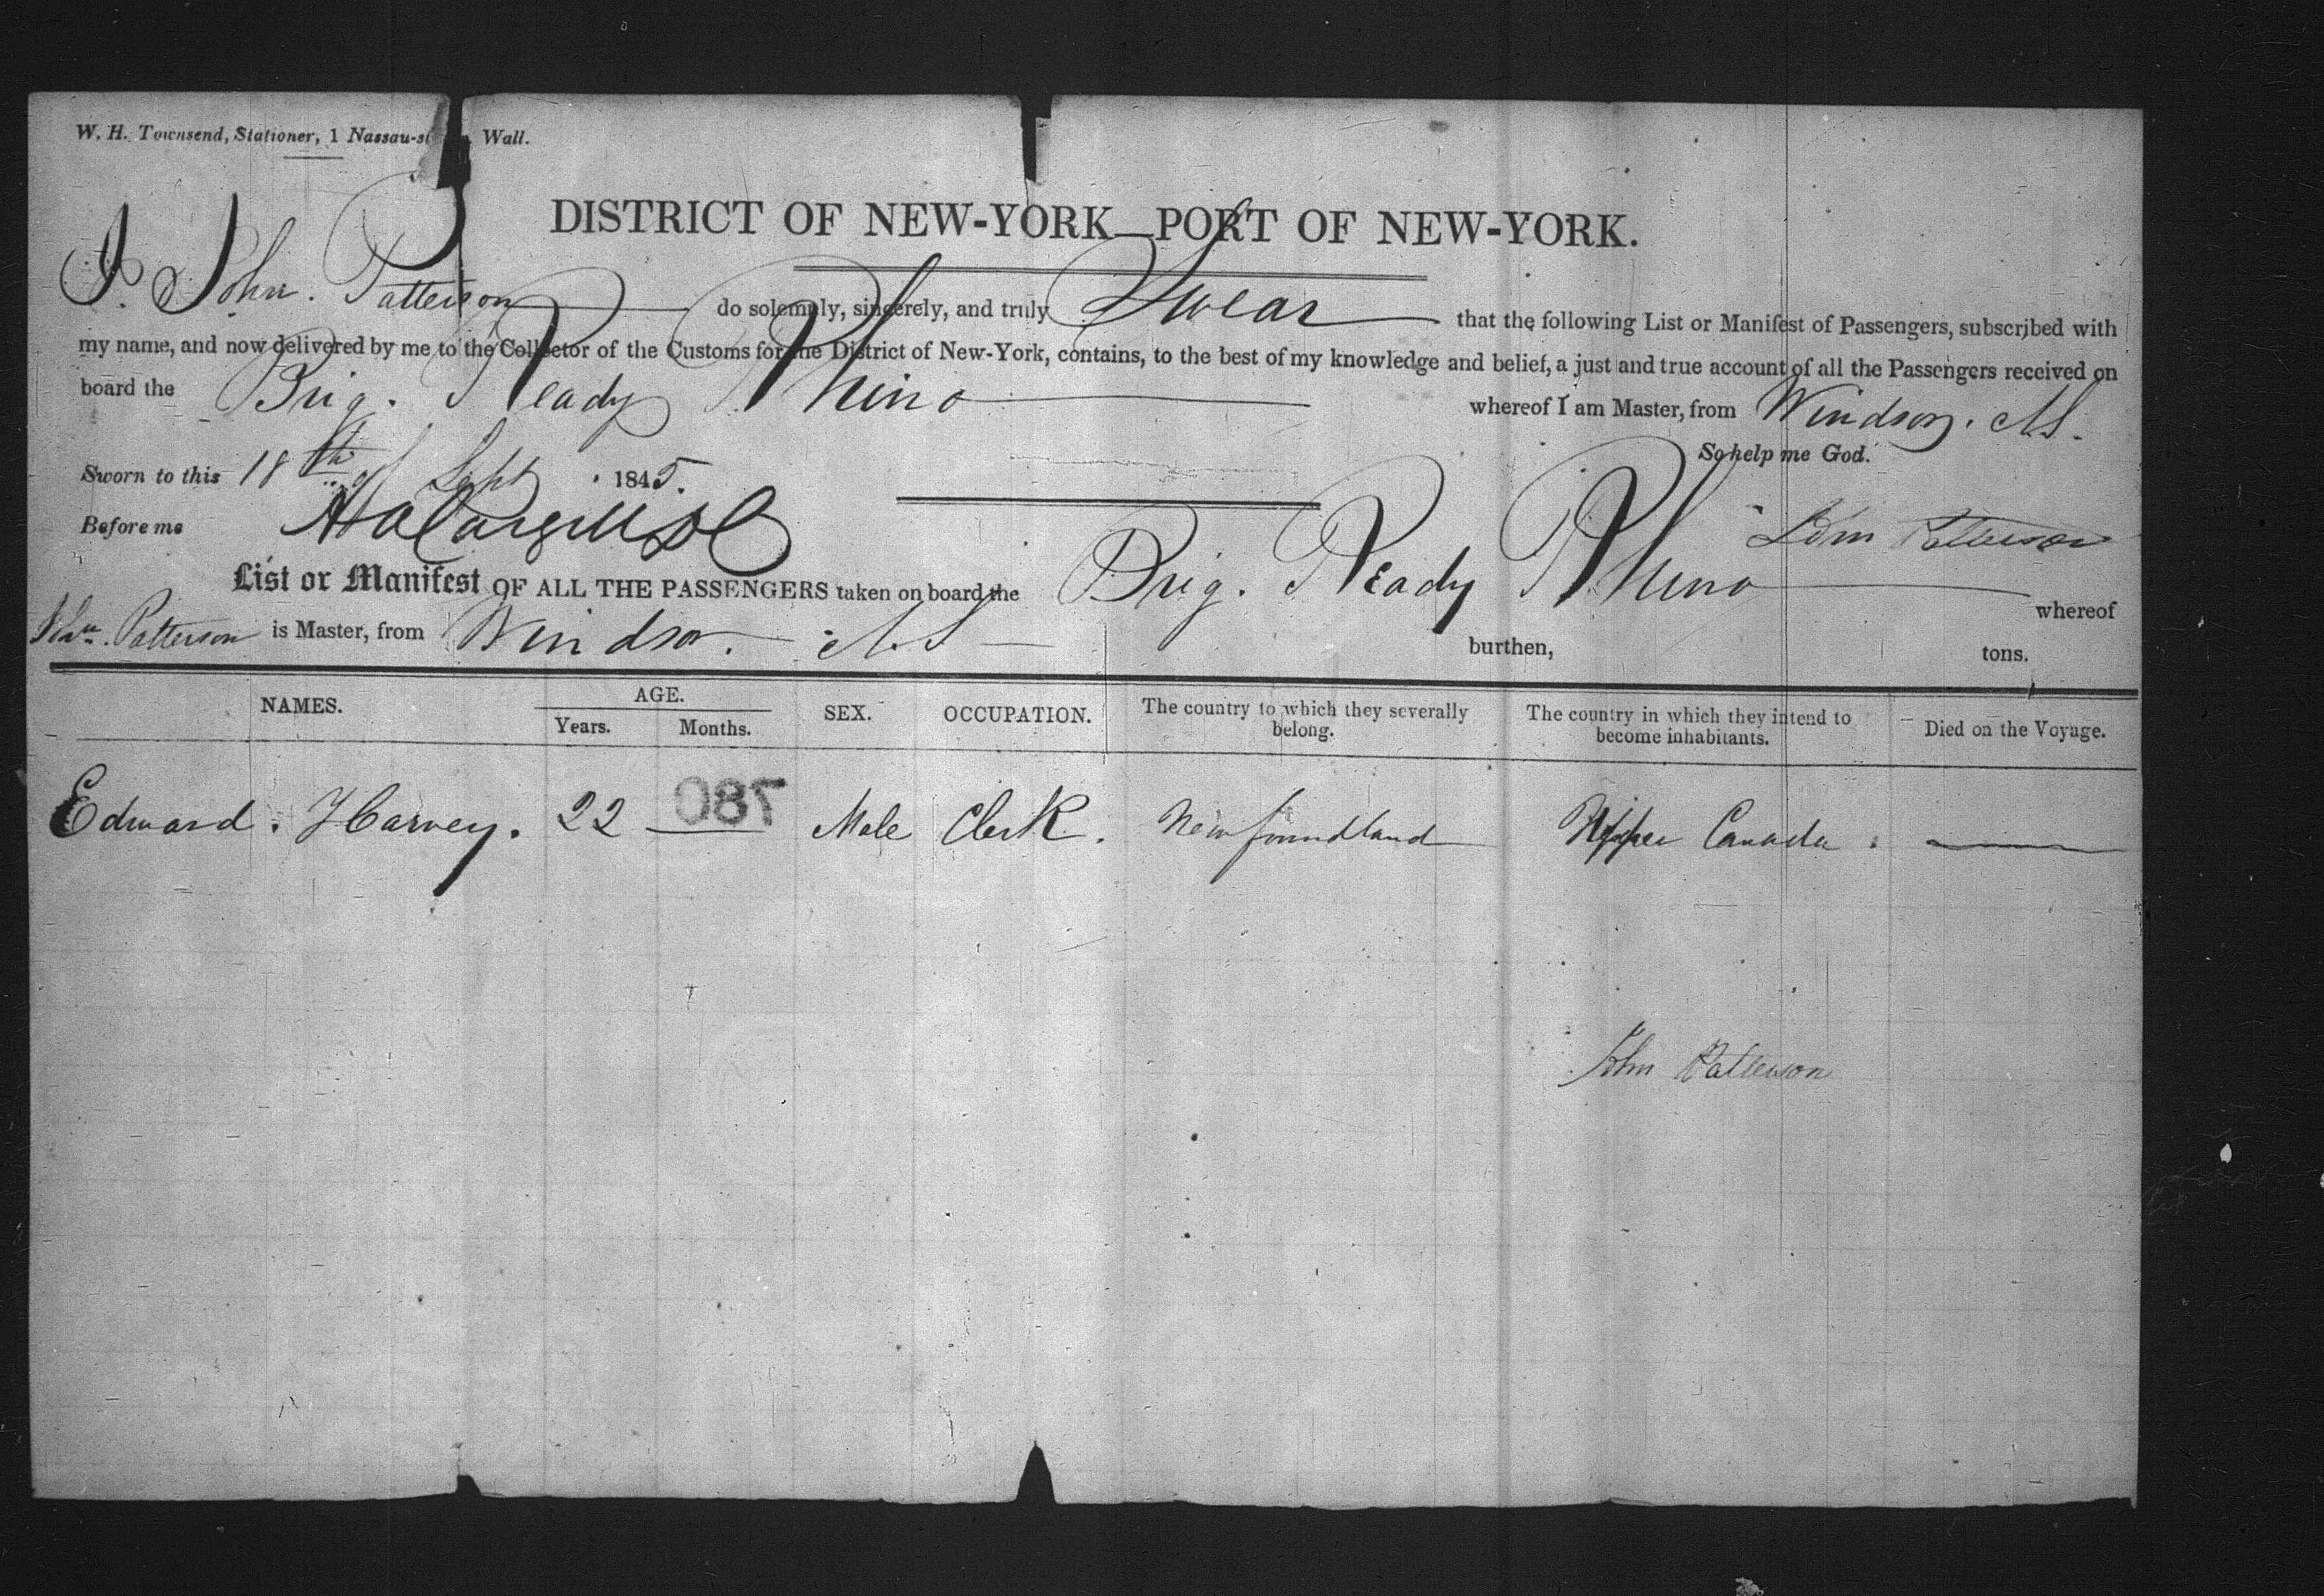 W. H. Townsend, Stationer, 1 Nassau-st Wall.
DISTRICT OF NEW-YORK—PORT OF NEW-YORK.
I. John. Patterson do solemnly, sincerely, and truly Swear that the following List or Manifest of Passengers, subscribed with
my name, and now delivered by me to the Collector of the Customs for the District of New-York, contains, to the best of my knowledge and belief, a just and true account of all the Passengers received on
board the Brig. Ready Rhino whereof I am Master, from Windsor. N.S.
So help me God.
Sworn to this 18th of Sept 1845.
Before me
John Patterson
List or Manifest OF ALL THE PASSENGERS taken on board the Brig. Ready Rhino whereof
John. Patterson is Master, from Windsor. N.S burthen, tons.
NAMES. AGE. Years. Months. SEX. OCCUPATION. The country to which they severally belong. The country in which they intend to become inhabitants. Died on the Voyage.
780
Edward. Harvey. 22 — Male Clerk. Newfoundland Upper Canada. —
John Patterson